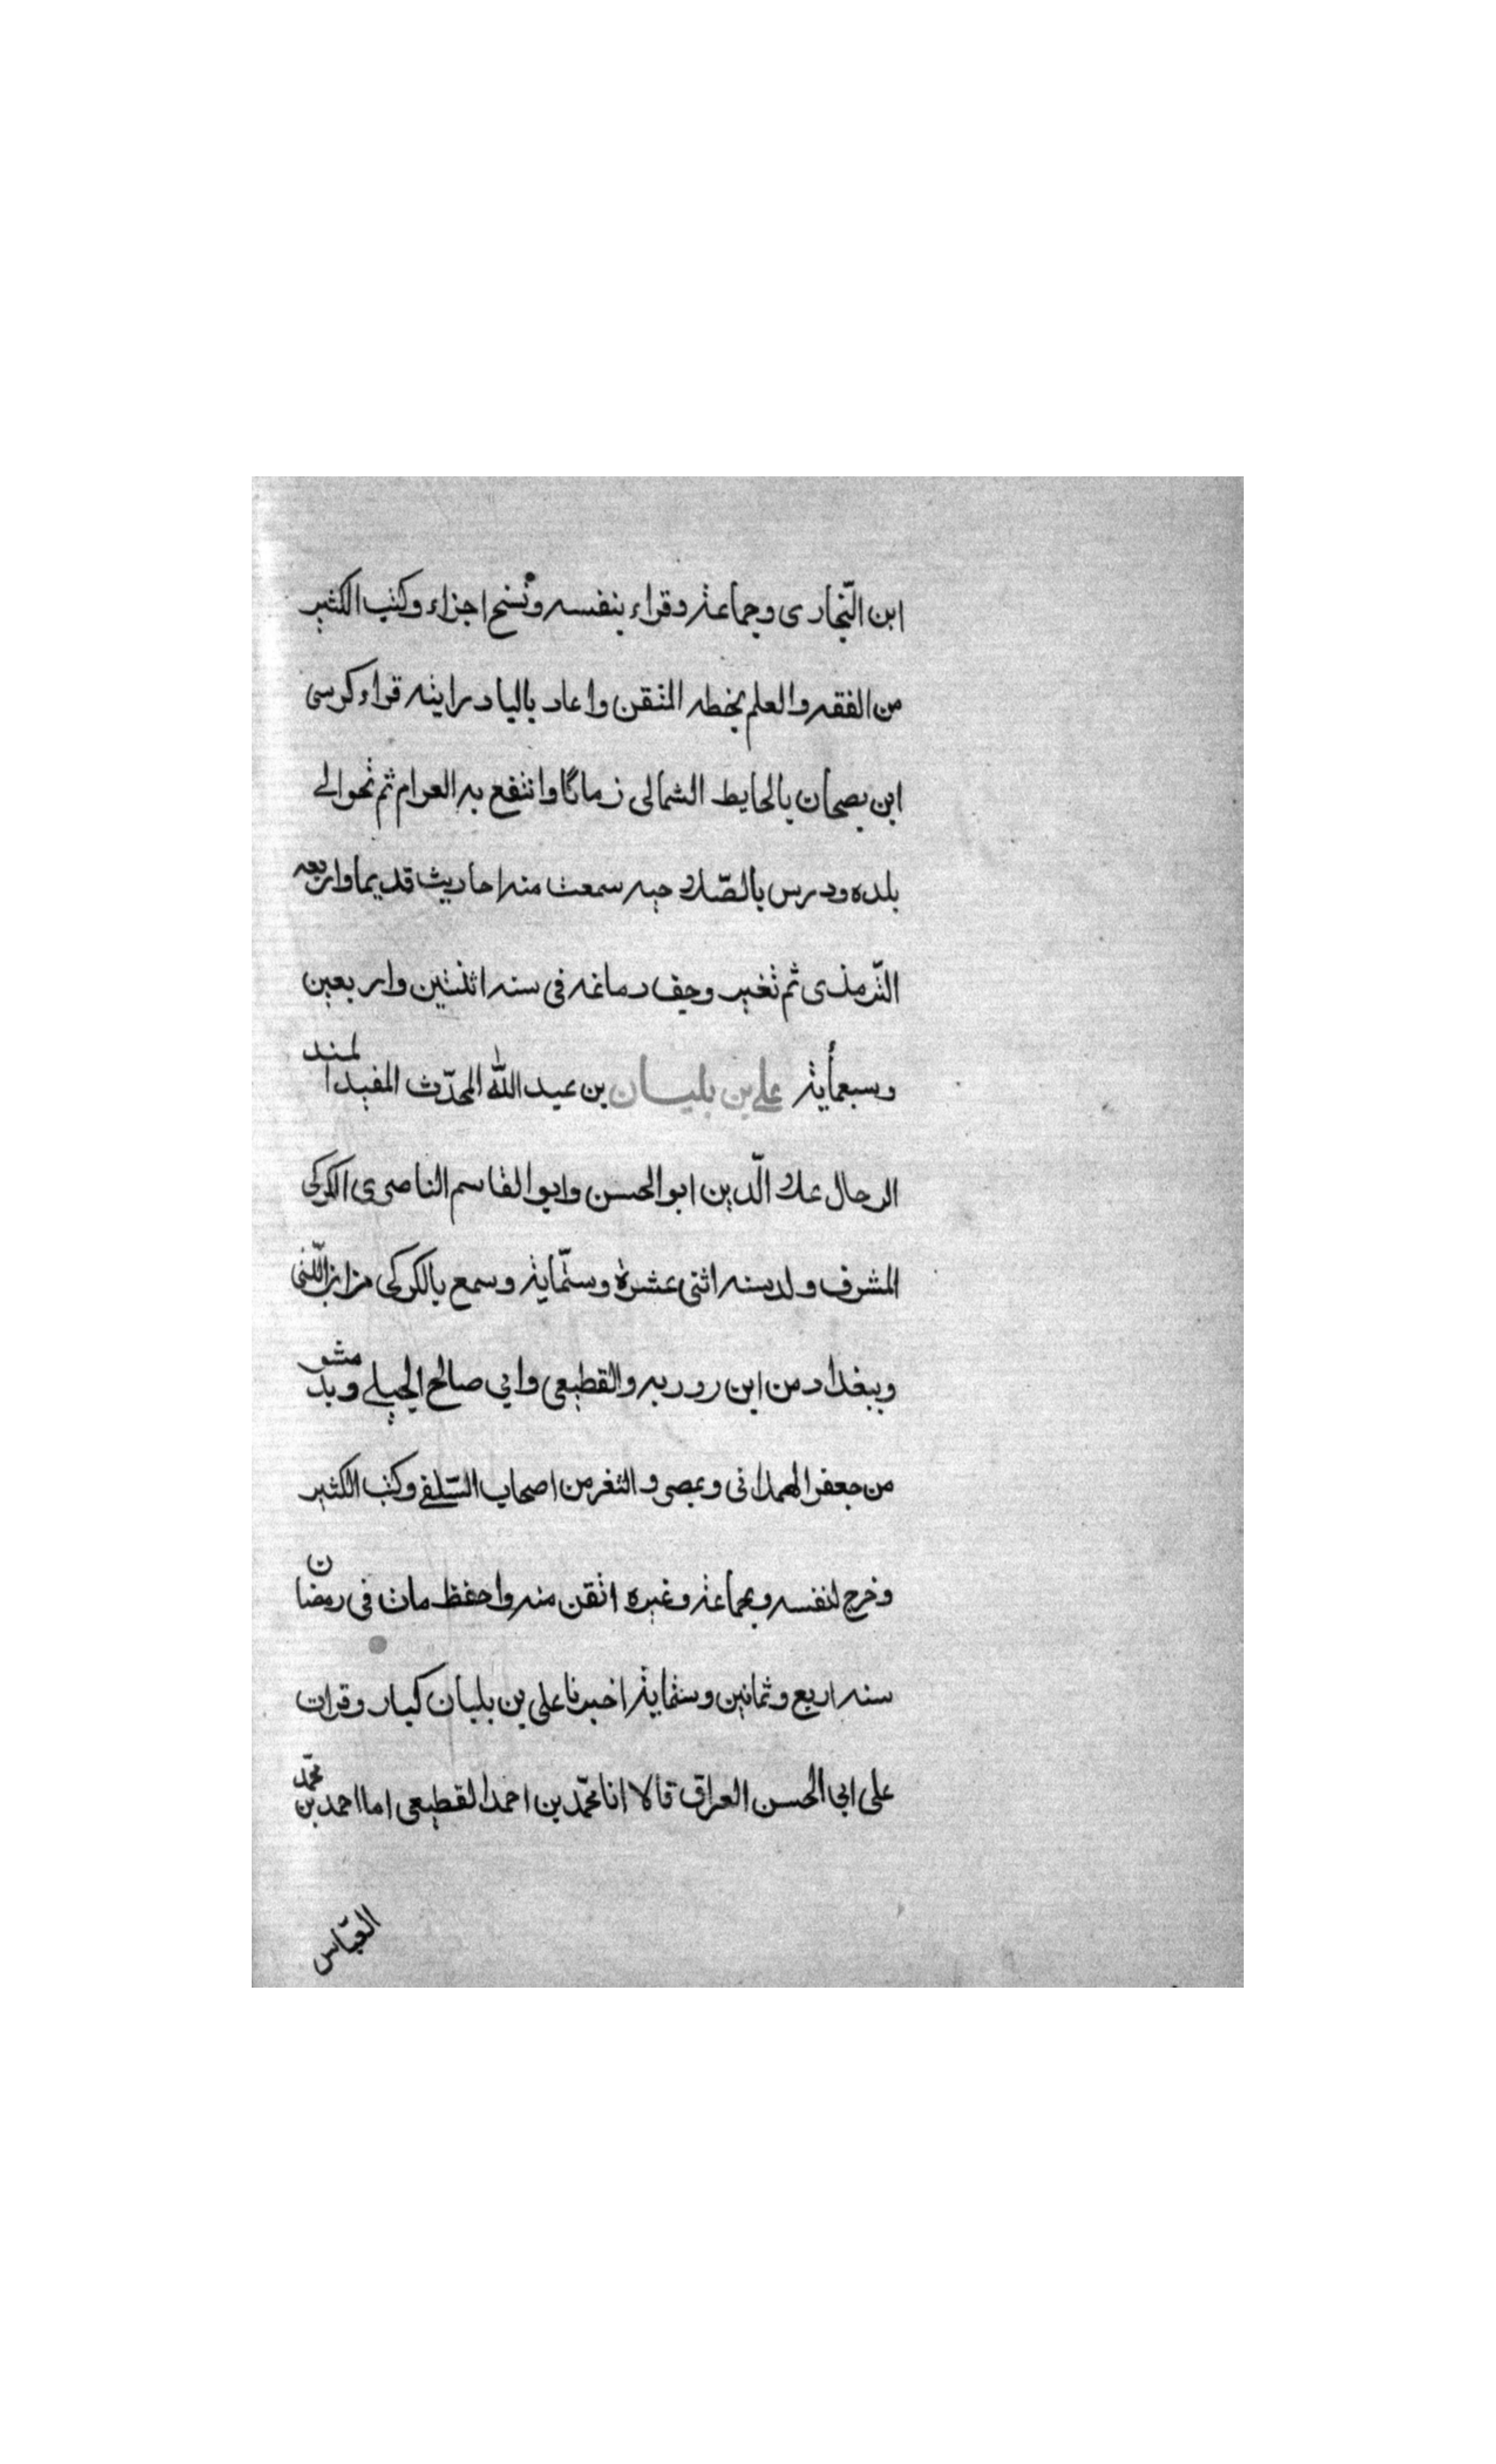 ابن النّجارى وجماعة وقراء بنفسه ونسخ اجزاء وكتب الكثير
من الفقه والعلم بخطه المتقن واعاد باليادرايته قراء كرسى
ابن بصحان بالحايط الشمالى زمانًا وانتفع به العوام ثم تحوالے
بلده ودرس بالصّلاحيه سمعت منه احاديث قديما واربعه
التّرمذى ثم تغير وجف دماغه فى سنه اثنتين واربعين
وسبعمأية على بن بليان بن عبد الله المحدّث المفيد المند
الرحال علا الّدين ابو الحسن وابو القاسم الناصرى الكركى
المشرف ولد سنه اثنى عشرة وستّماية وسمع بالكركى من ابن اللّتى
وببغداد من ابن روزبه والقطيعى وابي صالح الجيلے وبدمشو
من جعفر الهمدانى وبمصر والثغر من اصحاب السّلفے وكتب الكثير
وخرج لنفسه وبجماعة وغيره اتقن منه واحفظ مات فى رمضان
سنه اربع وثمانين وستماية اخبرنا على بن بلبان كبار وقرات
على ابي الحسن العراقى قالا انا محمّد بن احمد القطيعى اما احمد بن محمّد
العبّاس